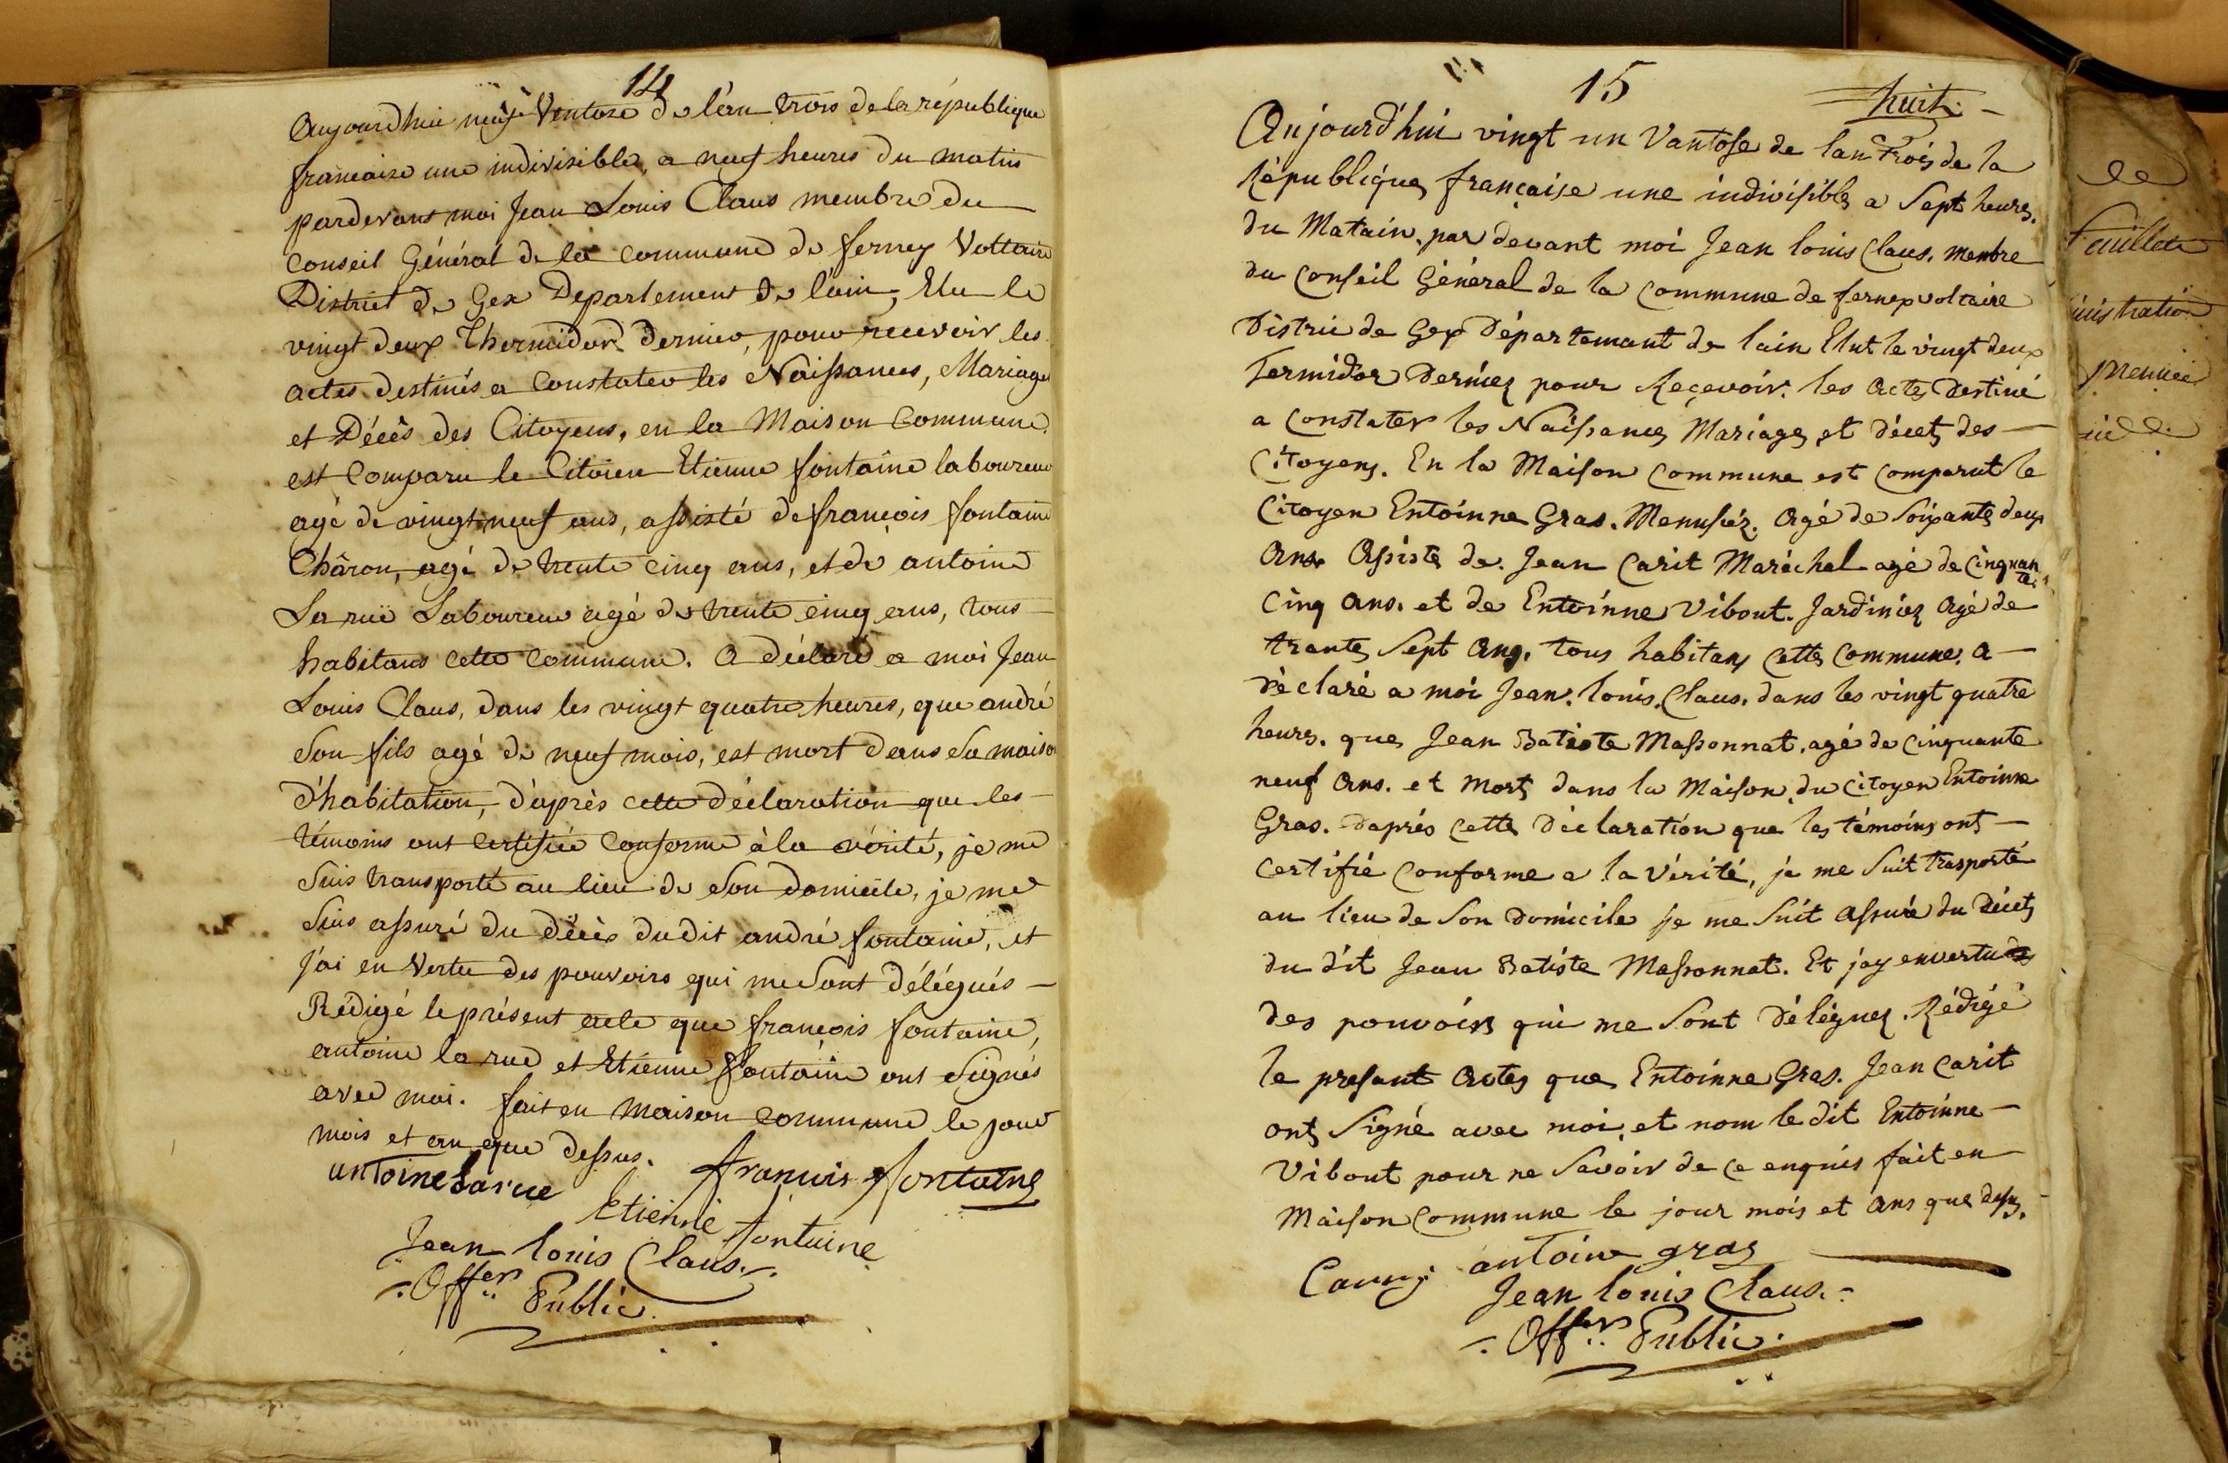 14
Aujourdhui neuf Ventose de l'an trois de la république
francaise une indivisible, a neuf heures du matin
pardevant moi Jean Louis Claus membre du
Conseil Général de la Commune de ferney Voltaire
District de Gex Département de l'ain, Elu le
vingt deux Thermidor dernier, pour recevoir les
actes destinés a Constater les Naissances, Mariages
et Décès des Citoyens, en la Maison Commune.
est Comparu le Citoien Etienne fontaine laboureur
agé de vingt neuf ans, assisté de françois fontaine
Châron, agé de trente cinq ans, et de antoine
La ruë Laboureur agé de trente cinq ans, tous
habitans cette Commune. A déclaré a moi Jean
Louis Claus, dans les vingt quatre heures, que andré
Son fils agé de neuf mois, est mort dans Sa maison
d'habitation, d'après cette déclaration que les
témoins ont certifiée Conforme à la vérité, je me
Suis transporté au lieu de Son domicile, je me
Suis assuré du décès dudit andré fontaine, et
j'ai en Vertu des pouvoirs qui me Sont délégués
Rédigé le présent acte que françois fontaine,
antoine la rue et Etienne fontaine ont Signés
avec moi. fait en maison Commune le jour
mois et an que dessus.
antoine Larue françois fontaine
Etienne fontaine
Jean louis Claus.
Offer Public.
15
huit.
Aujourd'hui vingt un Vantose de lan Trois de la
République française une indivisible a Sept heures.
du Matain. par devant moi Jean louis Claus. membre
du Conseil Général de la Commune de fernex voltaire
Distric de Gex Départemant de lain Elut le vingt deux
Termidor Dernier pour Reçevoir. les Actes Destiné
a Constater les Naissances Mariages et décets des
Citoyens. En la Maison Commune est Comparut le
Citoyen Entoinne Gras. Menusiér. Agé de Soixante deux
Ans. Assiste de. Jean Carit Maréchal agé de Cinquan
te.
Cinq Ans. et de Entoinne Vibout. Jardinier Agé de
trante Sept Ans. tous habitans Cette Commune. A
déclaré a moi Jean. louis. Claus. dans les vingt quatre
heures. que Jean Batiste Massonnat. agé de Cinquante
neuf Ans. et mort dans la Maison. du Citoyen Entoinne
Gras. daprés Cette Déclaration que les témoins ont
Certifié Conforme a la Vérité, je me Suit trasporté
au lieu de Son Domicile je me Suit Assuré du Décet
du dit Jean Batiste Massonnat. Et jay envertu
des pouvoirs qui me Sont Déléguez. Rédigé
le presant Actes que Entoinne Gras. Jean Carit
ont Signé avec moi et nom le dit Entoinne
Vibout pour ne Savoir de ce enquis fait en
Maison Commune le jour mois et Ans que dessus.
antoine gras
Jean louis Claus.
Offer Public.
feuillets